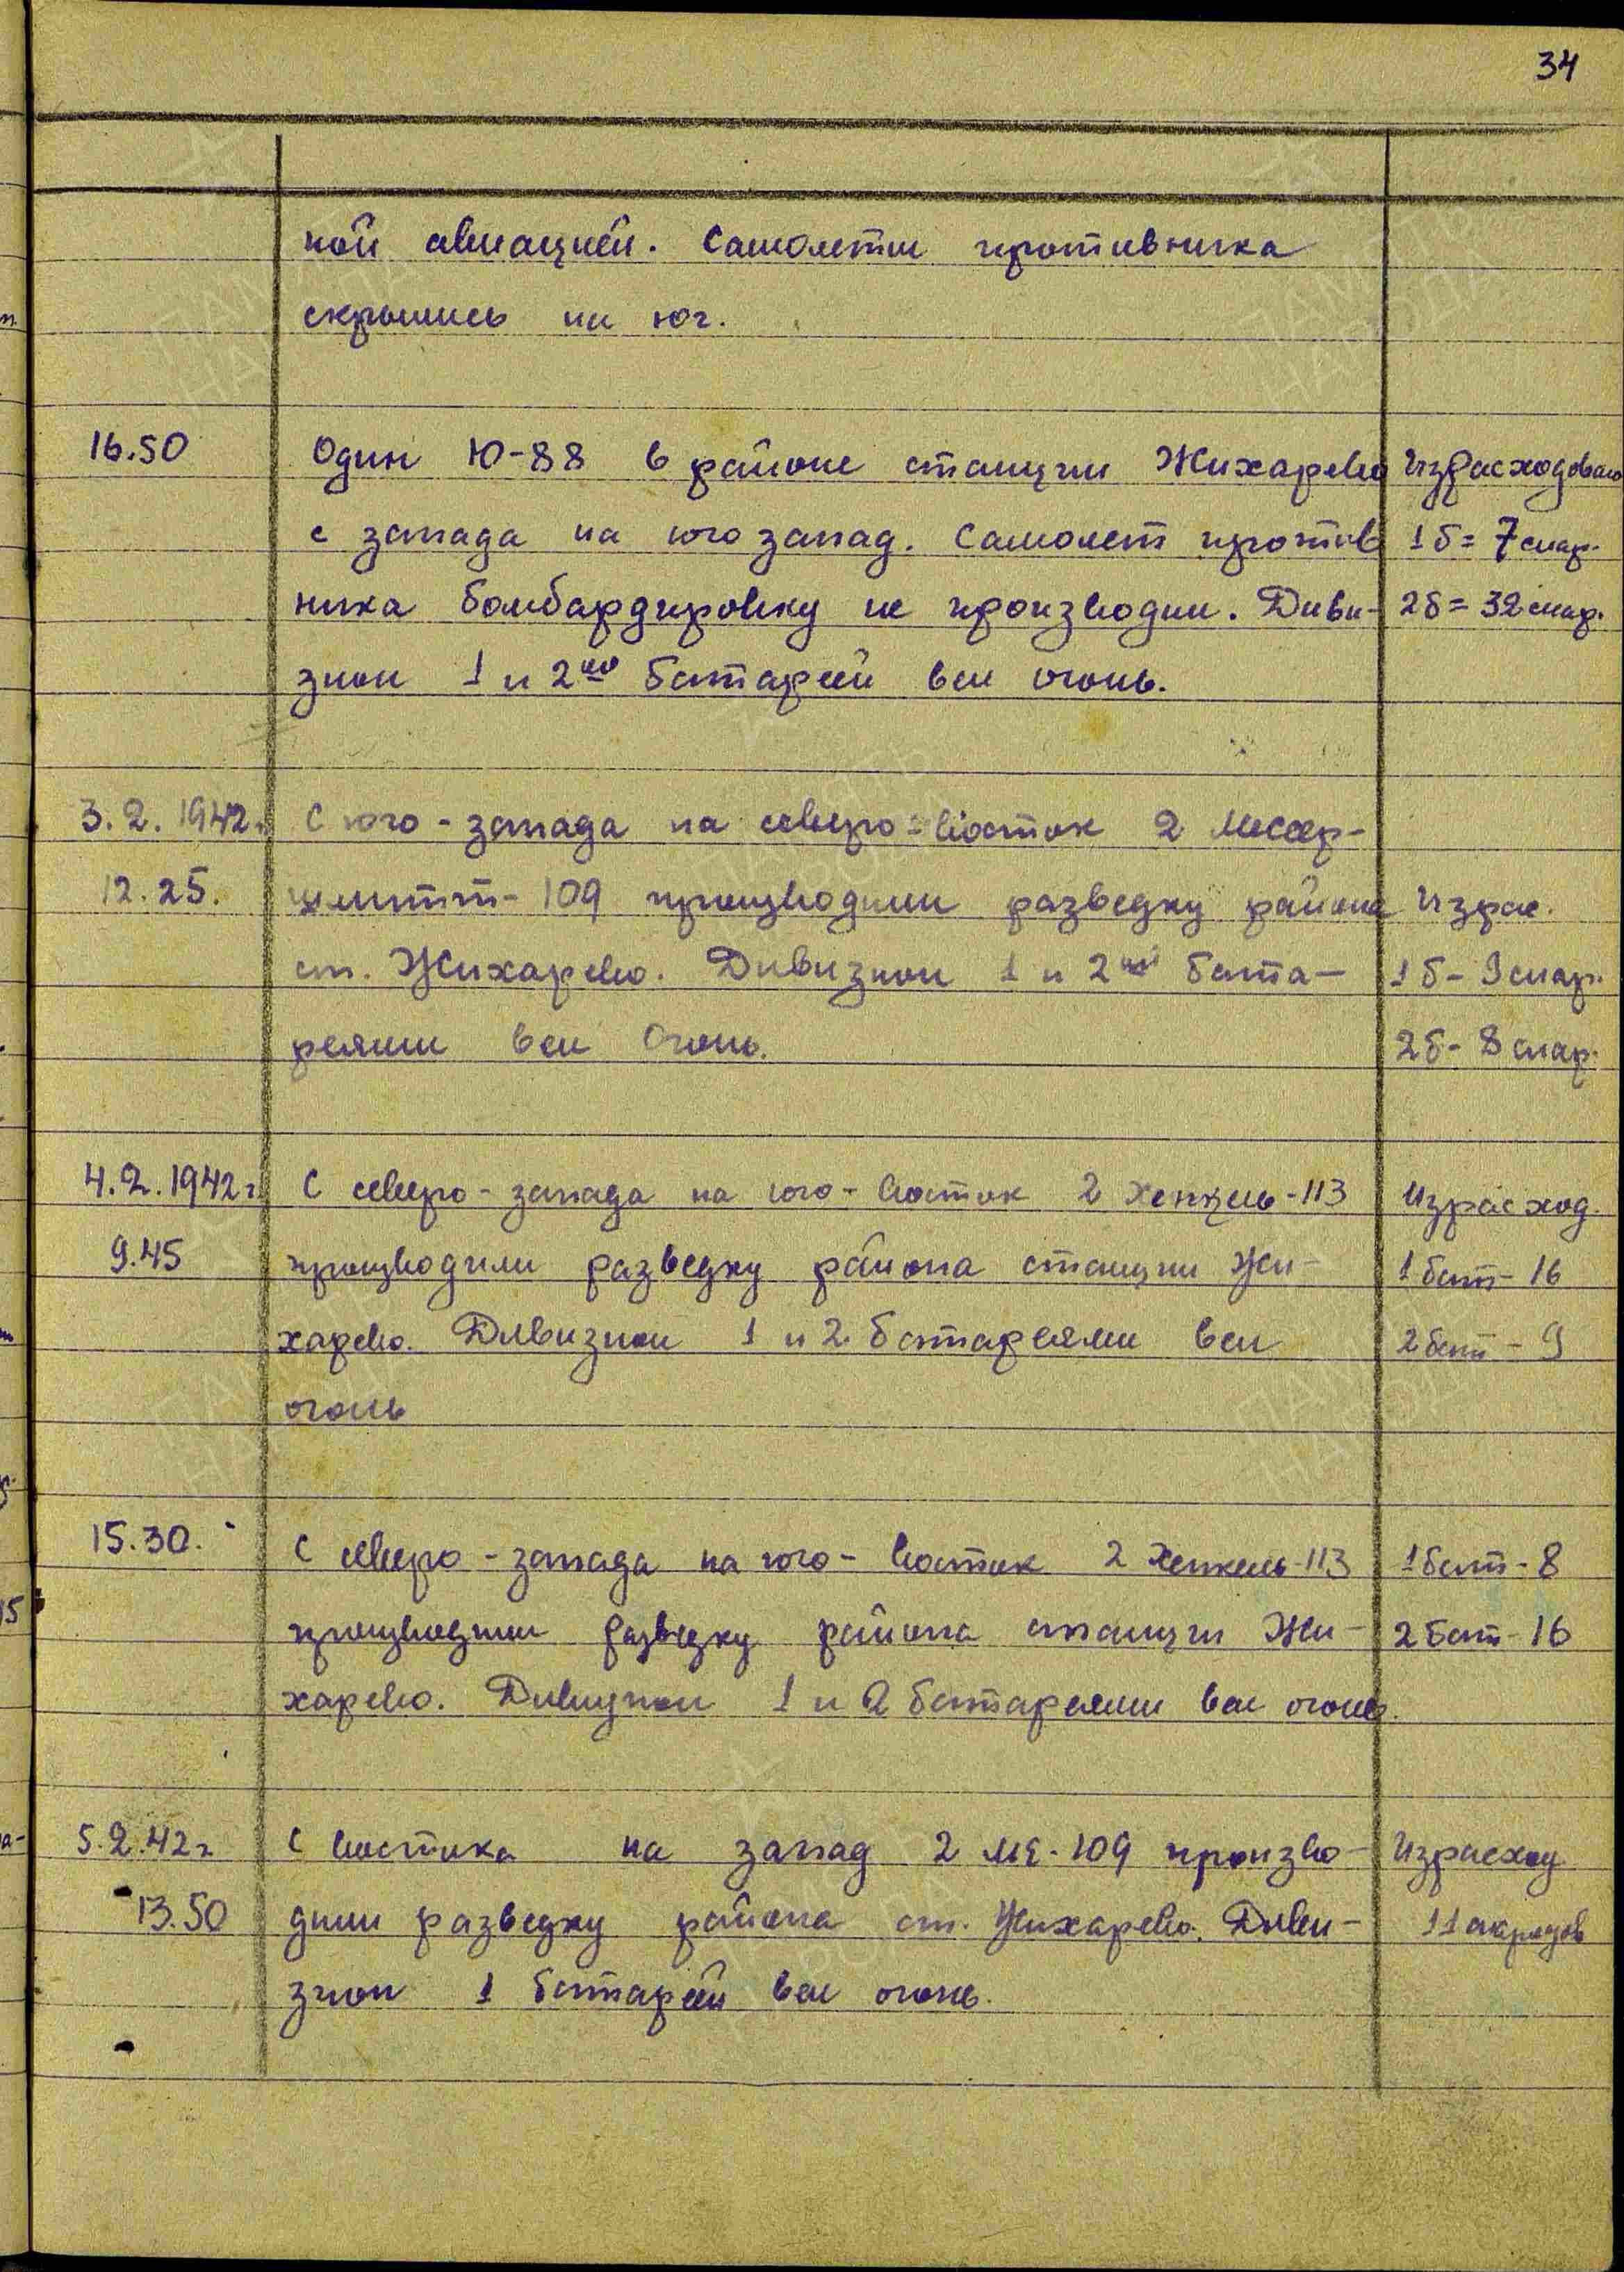 34
ной авиацией. Самолеты противника
скрылись на юг.
16.50 Один Ю-88 в районе станции Жихарево Израсходовано
с запада на юго запад. Самолет против 1б = 7 снар.
ника бомбардировку не производил. Диви- 2б = 32 снар.
зион 1 и 2ой батареей вел огонь.
3.2.1942г. С юго-запада на северо-восток 2 Мессер-
12.25. шмитт-109 производили разведку района Израс.
ст. Жихарево. Дивизион 1 и 2ой бата- 1б - 9 снар.
реями вел огонь. 2б - 8 снар.
4.2.1942г. С северо-запада на юго-восток 2 Хенкель-113 Израсход.
9.45 производили разведку района станции Жи- 1 бат - 16
харево. Дивизион 1 и 2 батареями вел 2 бат - 9
огонь
15.30. С северо-запада на юго-восток 2 Хенкель-113 1 бат - 8
производили разведку района станции Жи- 2 бат - 16
харево. Дивизион 1 и 2 батареями вел огонь.
5.2.42г С востока на запад 2 МЕ-109 произво- Израсход
13.50 дили разведку района ст. Жихарево. Диви- 11 снарядов
зион 1 батареей вел огонь.
ПАМЯТЬ
НАРОДА